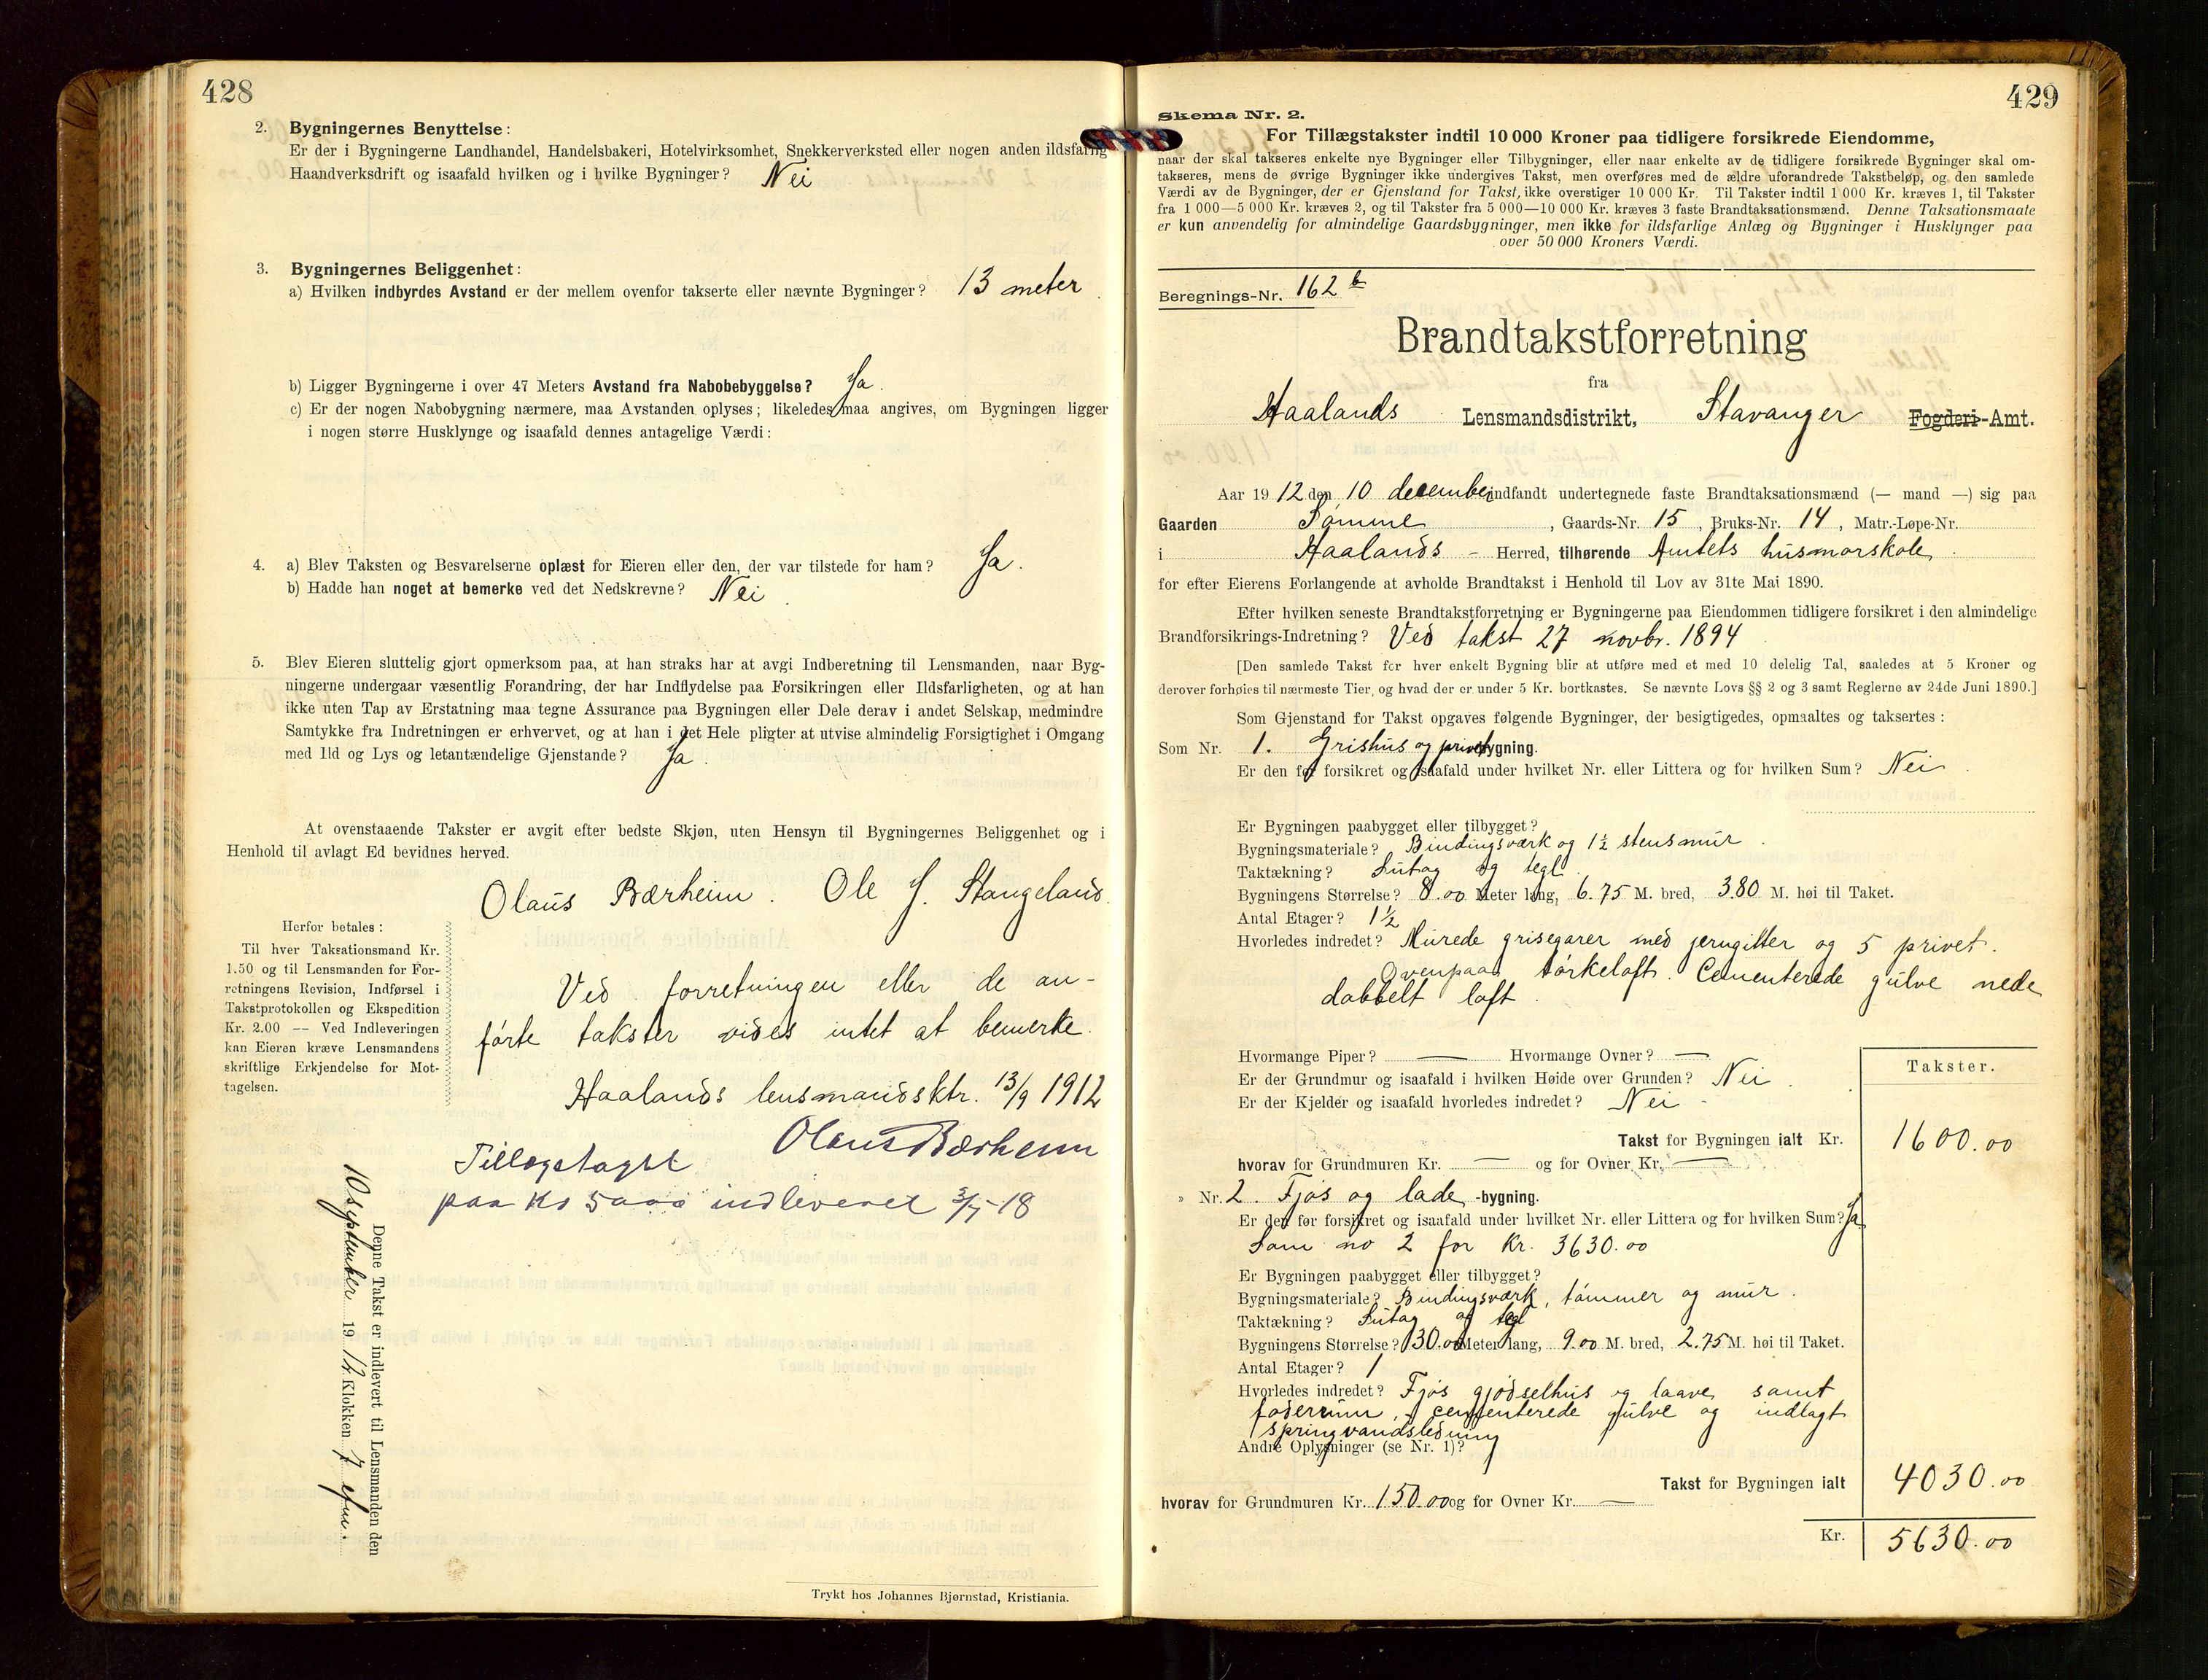 428
2. Bygningernes Benyttelse:
Er der i Bygningerne Landhandel, Handelsbakeri, Hotelvirksomhet, Snekkerverksted eller nogen anden ildsfarlig
Haandverksdrift og isaafald hvilken og i hvilke Bygninger? Nei
3. Bygningernes Beliggenhet:
a) Hvilken indbyrdes Avstand er der mellem ovenfor takserte eller nævnte Bygninger? 13 meter.
b) Ligger Bygningerne i over 47 Meters Avstand fra Nabobebyggelse? Ja.
c) Er der nogen Nabobygning nærmere, maa Avstanden oplyses; likeledes maa angives, om Bygningen ligger
i nogen større Husklynge og isaafald dennes antagelige Værdi:
4. a) Blev Taksten og Besvarelserne oplæst for Eieren eller den, der var tilstede for ham? Ja.
b) Hadde han noget at bemerke ved det Nedskrevne? Nei.
5. Blev Eieren sluttelig gjort opmerksom paa, at han straks har at avgi Indberetning til Lensmanden, naar Byg-
ningerne undergaar væsentlig Forandring, der har Indflydelse paa Forsikringen eller Ildsfarligheten, og at han
ikke uten Tap av Erstatning maa tegne Assurance paa Bygningen eller Dele derav i andet Selskap, medmindre
Samtykke fra Indretningen er erhvervet, og at han i det Hele pligter at utvise almindelig Forsigtighet i Omgang
med Ild og Lys og letantændelige Gjenstande? Ja.
At ovenstaaende Takster er avgit efter bedste Skjøn, uten Hensyn til Bygningernes Beliggenhet og i
Henhold til avlagt Ed bevidnes herved.
Olaus Bærheim. Ole J. Stangeland.
Herfor betales:
Til hver Taksationsmand Kr.
1.50 og til Lensmanden for For-
retningens Revision, Indførsel i
Takstprotokollen og Ekspedition
Kr. 2.00 — Ved Indleveringen
kan Eieren kræve Lensmandens
skriftlige Erkjendelse for Mot-
tagelsen.
Ved forretningen eller de an-
førte takster vides intet at bemerke.
Haalands lensmandsktr. 13/9 1912
Olaus Bærheim
Tillægstagst
paa Kr 5000 indleveret 3/5-18
Denne Takst er indlevert til Lensmanden den
10 september 1912 Klokken 7 efm.
Trykt hos Johannes Bjørnstad, Kristiania.
429
Skema Nr. 2.
For Tillægstakster indtil 10 000 Kroner paa tidligere forsikrede Eiendomme,
naar der skal takseres enkelte nye Bygninger eller Tilbygninger, eller naar enkelte av de tidligere forsikrede Bygninger skal om-
takseres, mens de øvrige Bygninger ikke undergives Takst, men overføres med de ældre uforandrede Takstbeløp, og den samlede
Værdi av de Bygninger, der er Gjenstand for Takst, ikke overstiger 10 000 Kr. Til Takster indtil 1 000 Kr. kræves 1, til Takster
fra 1 000—5 000 Kr. kræves 2, og til Takster fra 5 000—10 000 Kr. kræves 3 faste Brandtaksationsmænd. Denne Taksationsmaate
er kun anvendelig for almindelige Gaardsbygninger, men ikke for ildsfarlige Anlæg og Bygninger i Husklynger paa
over 50 000 Kroners Værdi.
Beregnings-Nr. 162 b
Brandtakstforretning
fra
Haalands Lensmandsdistrikt, Stavanger Fogderi-Amt.
Aar 1912 den 10 december indfandt undertegnede faste Brandtaksationsmænd (— mand —) sig paa
Gaarden Sømme, Gaards-Nr. 15, Bruks-Nr. 14, Matr.-Løpe-Nr.
i Haalands - Herred, tilhørende Amtets husmorskole.
for efter Eierens Forlangende at avholde Brandtakst i Henhold til Lov av 31te Mai 1890.
Efter hvilken seneste Brandtakstforretning er Bygningerne paa Eiendommen tidligere forsikret i den almindelige
Brandforsikrings-Indretning? Ved takst 27 novbr. 1894
[Den samlede Takst for hver enkelt Bygning blir at utføre med et med 10 delelig Tal, saaledes at 5 Kroner og
derover forhøies til nærmeste Tier, og hvad der er under 5 Kr. bortkastes. Se nævnte Lovs §§ 2 og 3 samt Reglerne av 24de Juni 1890.]
Som Gjenstand for Takst opgaves følgende Bygninger, der besigtigedes, opmaaltes og taksertes:
Som Nr. 1. Grishus og privet bygning.
Er den før forsikret og isaafald under hvilket Nr. eller Littera og for hvilken Sum? Nei.
Er Bygningen paabygget eller tilbygget?
Bygningsmateriale? Bindingsværk og 1½ stensmur.
Taktækning? Sutag og tegl.
Bygningens Størrelse? 8.00 Meter lang, 6.75 M. bred, 3.80 M. høi til Taket.
Antal Etager? 1½
Hvorledes indredet? Murede grisegarer med jerngitter og 5 privet.
Ovenpaa tørkeloft. Cementerede gulve nede
dobbelt loft.
Hvormange Piper? — Hvormange Ovner? —
Er der Grundmur og isaafald i hvilken Høide over Grunden? Nei.
Er der Kjelder og isaafald hvorledes indredet? Nei -
Takster.
Takst for Bygningen ialt Kr. 1600.00
hvorav for Grundmuren Kr. — og for Ovner Kr. —
» Nr. 2. Fjøs og lade -bygning.
Er den før forsikret og isaafald under hvilket Nr. eller Littera og for hvilken Sum? Ja
Som no 2 for Kr. 3630.00
Er Bygningen paabygget eller tilbygget?
Bygningsmateriale? Bindingsværk, tømmer og mur.
Taktækning? Sutag og tegl
Bygningens Størrelse? 30.00 Meter lang, 9.00 M. bred, 2.75 M. høi til Taket.
Antal Etager? 1
Hvorledes indredet? Fjøs gjødselhus og laave samt
foderrum, cementerede gulve og indlagt
springvandsledning
Andre Oplysninger (se Nr. 1)?
Takst for Bygningen ialt 4030.00
hvorav for Grundmuren Kr. 150.00 og for Ovner Kr. —
Kr. 5630.00